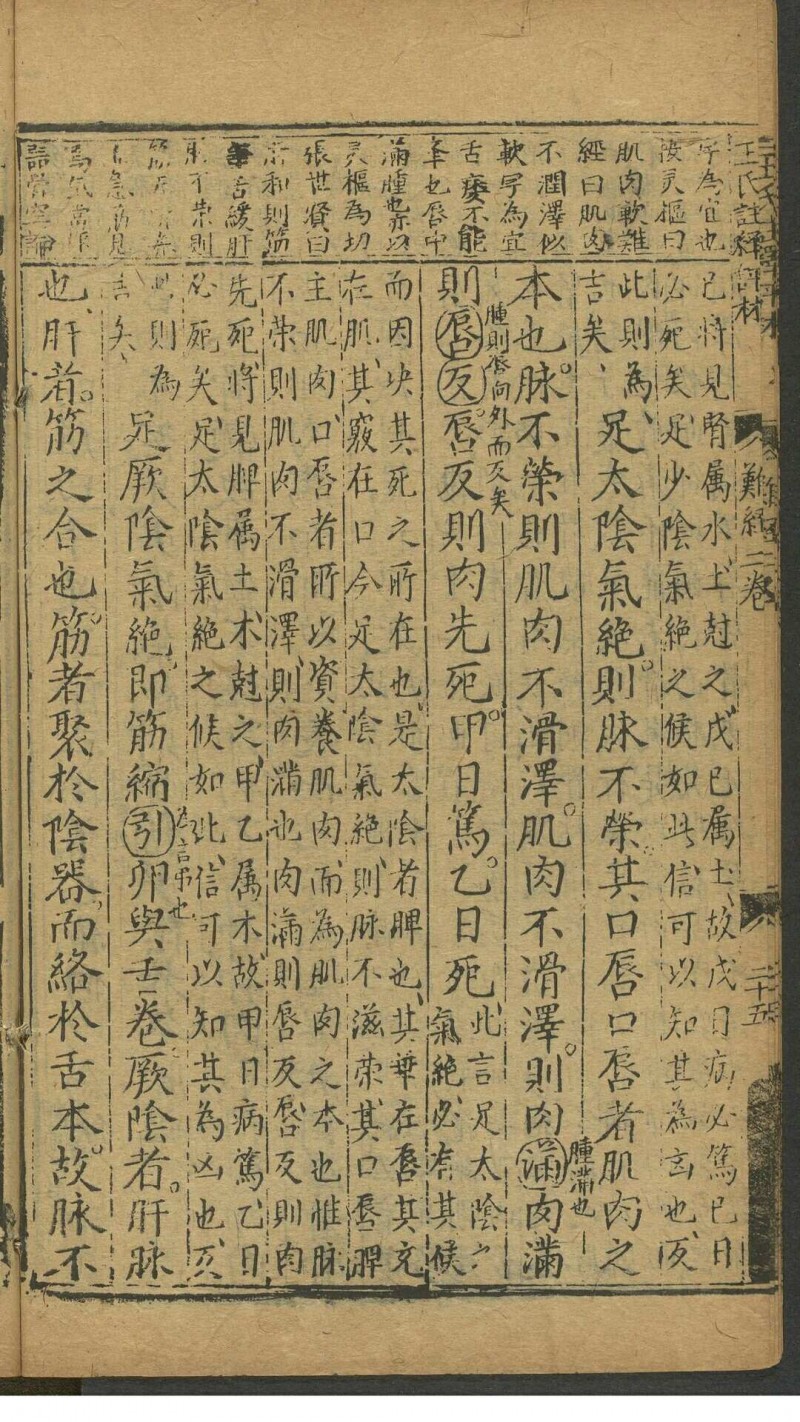 難經二卷
二十五
字為宜也
按灵樞曰
肌肉軟難
經曰肌肉
不潤澤似
軟字為宜
舌痿不能
滿腫也
灵樞為切
張世賢曰
和則筋
舌緩肝
已將見腎属水土尅之戊已属土故戊日病必篤已日
必死矣足少陰氣絶之候如此信可以知其為㐫也
此則為足太陰氣絶則脉不榮其口唇口唇者肌肉之
吉矣
本也脉不榮則肌肉不滑澤肌肉不滑澤則肉滿肉滿
腫滿也
則唇反唇反則肉先死甲日篤乙日死此言足太陰
腫則唇向外而反矣
氣絶必有其候
而因决其死之所在也是太陰者脾也其華在唇其充
在肌其竅在口今足太陰氣絶則脉不滋荣其口唇脾
主肌肉口唇者所以資養肌肉而為肌肉之本也惟脉
不荣則肌肉不滑澤則肉滿也肉滿則唇反唇反則肉
先死將見脾属土木尅之甲乙属木故甲日病篤乙日
必死矣足太陰氣絶之候如此信可以知其為凶也
則為足厥陰氣絶即筋縮引卵與舌卷厥陰者肝脉
吉矣
也肝者筋之合也筋者聚於陰器而絡於舌本故脉不